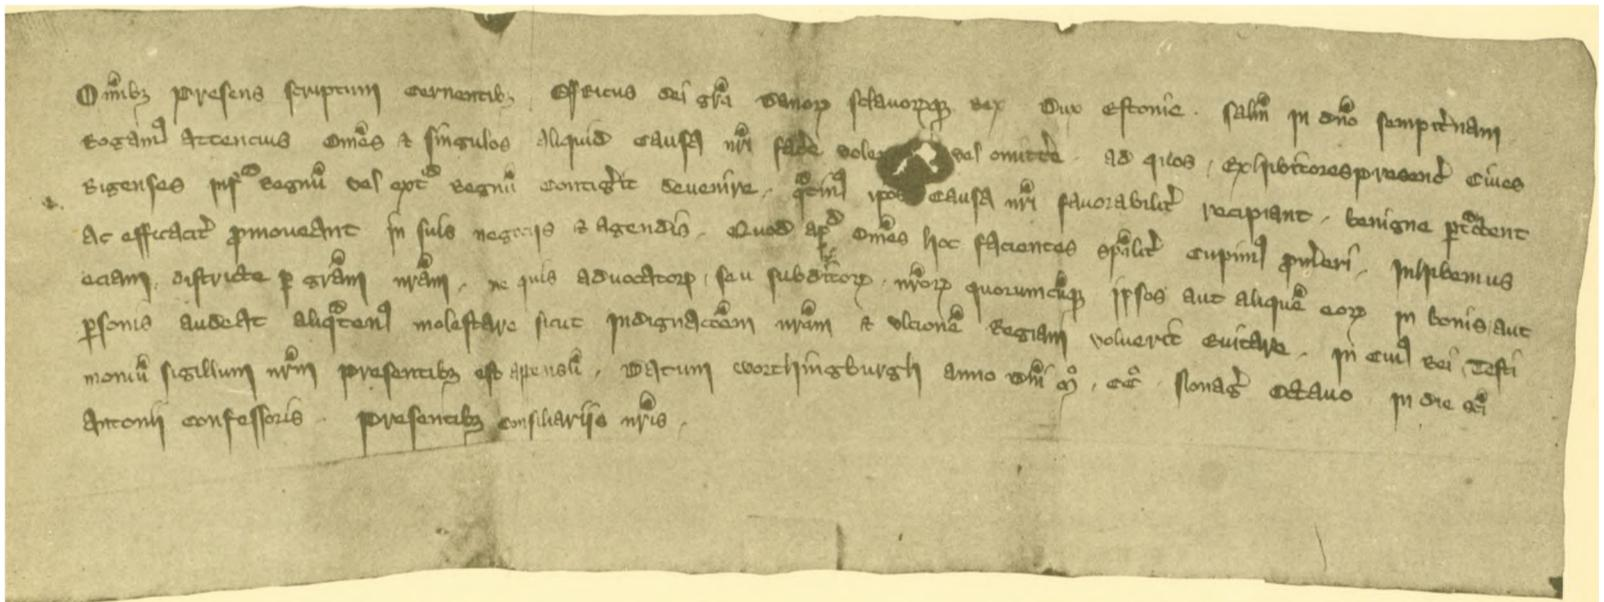 Om̅ibꝫ presens scriptum cernentibꝫ Ericus dei gr̅a danorꝝ sclauorꝝqꝫ rex dux estonie . saltm̅ in dn̅o sempit̅nam
Rogamꝰ attencius om̅es ⁊ singulos aliquid causa nr̅i fac̅e vel omitt̅e . ad quos , exhibitores presenc̅ ciues
Rigenses infᵃ regnu̅ vel extᵃ regnu̅ contig̅it deuenire . qᵃtinꝰ ip̅os causa nr̅i fauorabilit̅ recipiant , benigne ꝑtᵃctent
ac efficacit̅ ꝓmoueant in suis negociis ⁊ agendis . Quod apᵈ om̅es hoc facientes sp̅alit̅ cupimꝰ ꝓm̅eri . Inhibemus
eciam , districte ꝑ gr̅am nr̅am , ne quis aduocatorꝝ , seu subditorꝝ . nr̅orꝝ quorumcu̅qꝫ ipsos aut alique̅ eorꝝ in bonis aut
ꝑsonis audeat aliqᵃtenꝰ molestare sicut indignac̅o̅em nr̅am ⁊ vlcione̅ regiam voluerit euitare . in cuiꝰ rei , testi
moniu̅ sigillum nr̅m presentibꝫ est apensu̅ . Datum worthingburgh anno dn̅i mᵒ . ccᵒ . Nonag̅ octauo in die sc̅i
Antonii confessoris . presentibꝫ consiliariis nr̅is .